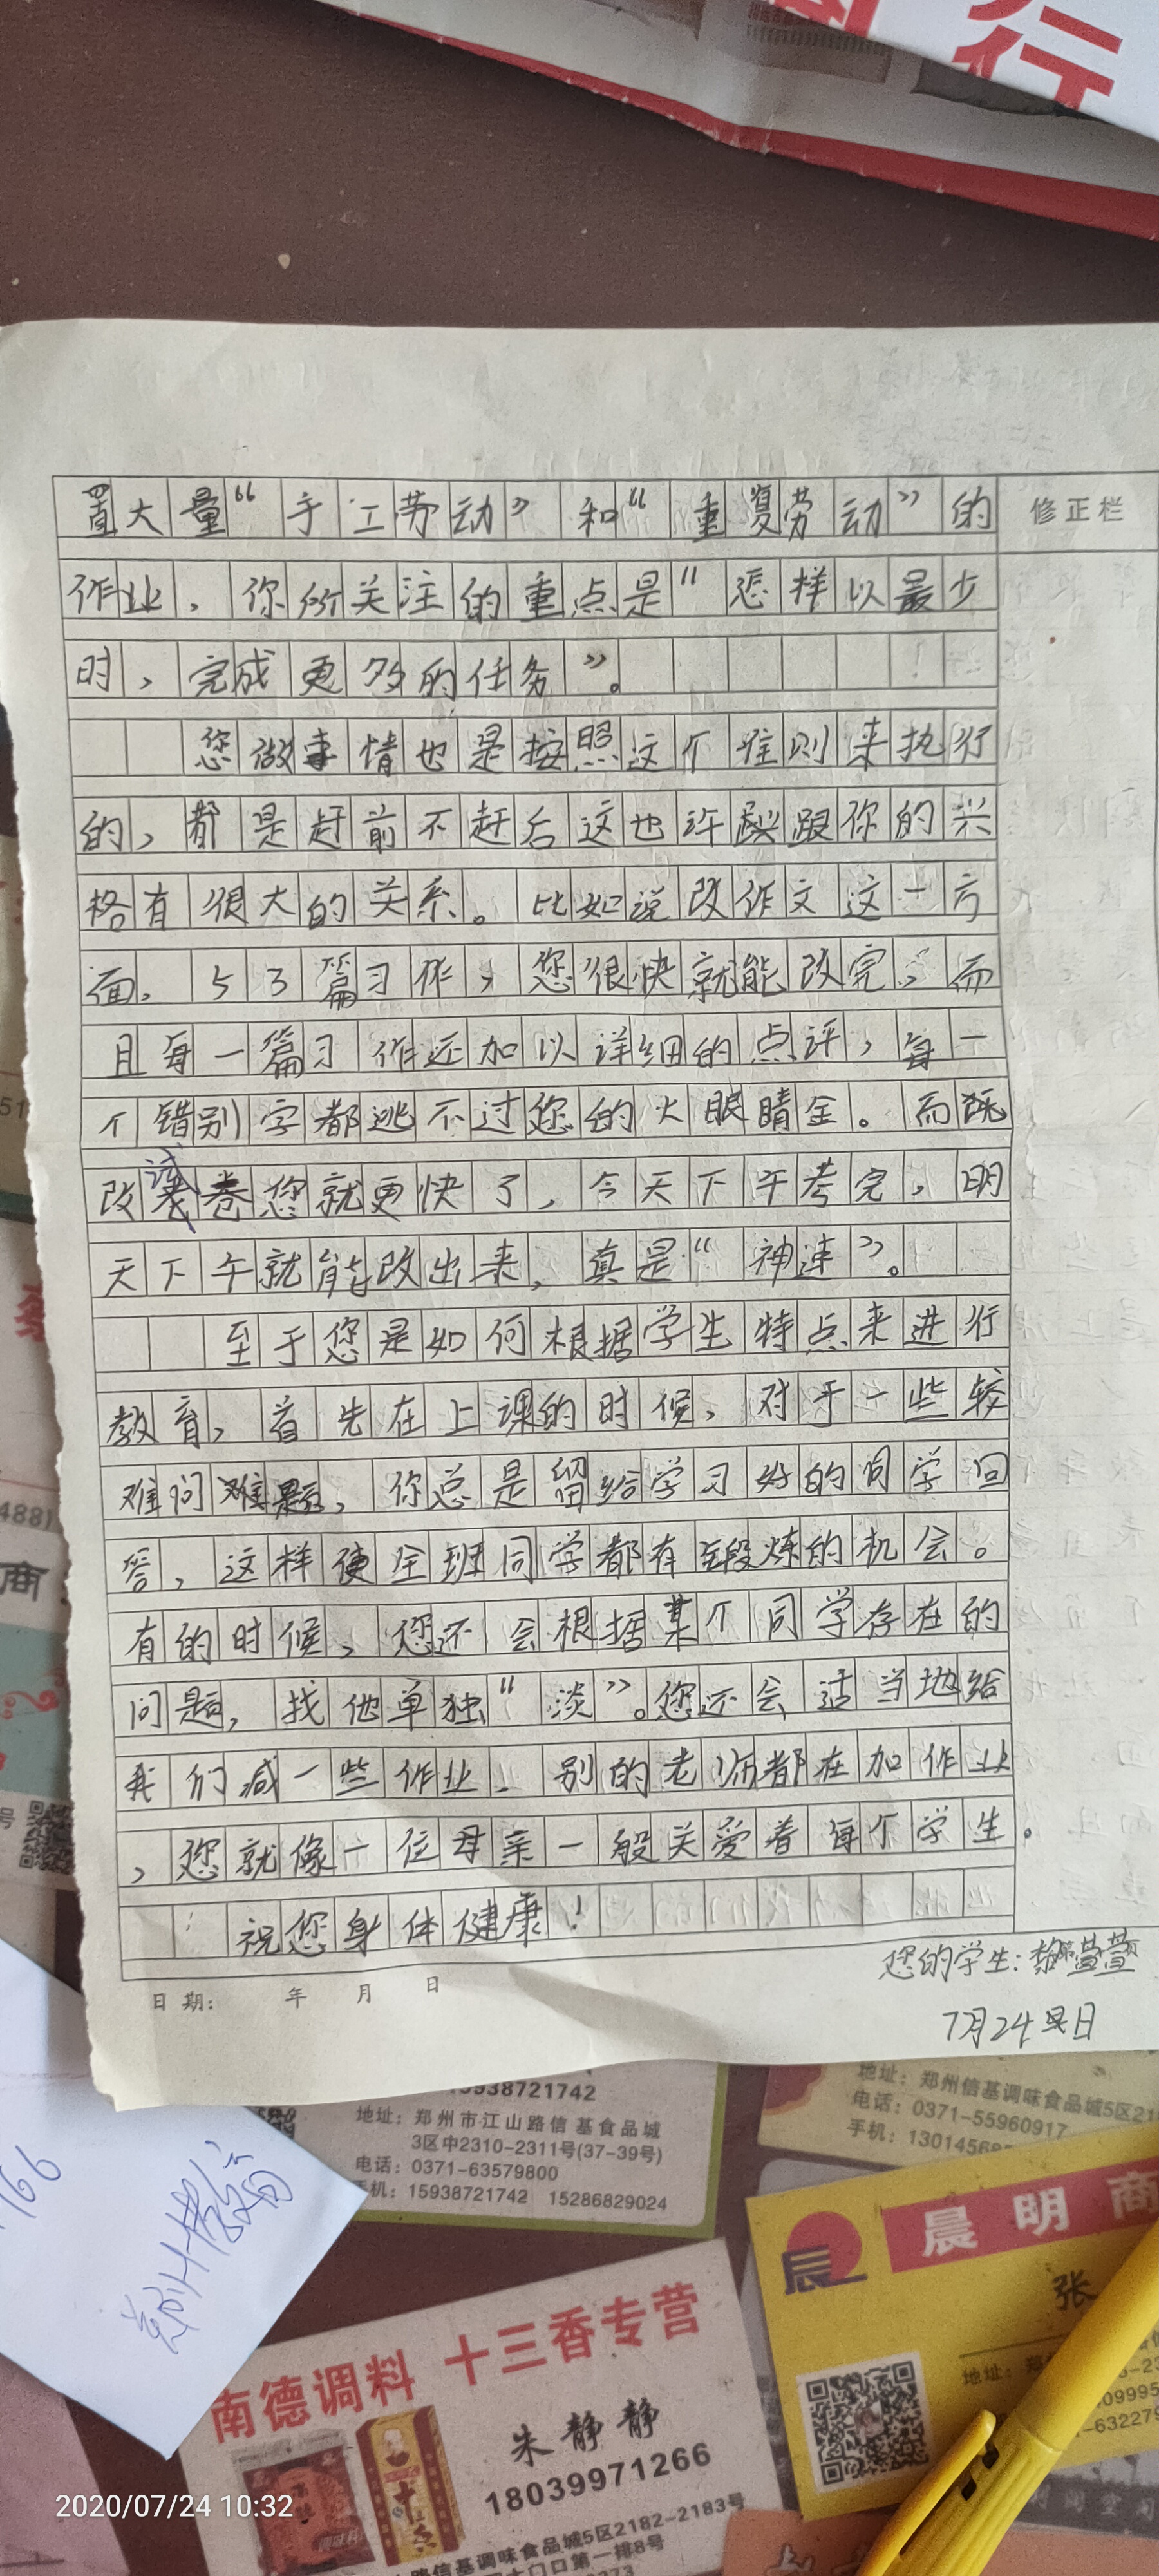 行
置大量“手工劳动”和“重复劳动”的
修正栏
作业，你所关注的重点是“怎样以最少
时，完成更多的任务”。
您做事情也是按照这个准则来执行
的，都是赶前不赶后这也许跟你的兴
格有很大的关系。比如说改作文这一方
面，53篇习作，您很快就能改完，而
且每一篇习作还加以详细的点评，每一
个错别字都逃不过您的火眼睛金。而既
改试卷您就更快了，今天下午考完，明
天下午就能改出来，真是“神速”。
至于您是如何根据学生特点来进行
教育，首先在上课的时候，对于一些较
难问难题，你总是留给学习好的同学回
答，这样使全班同学都有段炼的机会。
有的时候，您还会根据某个同学存在的
问题，找他单独“淡”。您还会适当地给
我们减一些作业，别的老师都在加作业
，您就像一位母亲一般关爱着每个学生。
祝您身体健康！
您的学生：
日期： 年 月 日
7月24日
15938721742
地址：郑州市江山路信基食品城
3区中2310-2311号(37-39号)
电话：0371-63579800
手机：15938721742 15286829024
地址：郑州信基调味食品城5区21
电话：0371-55960917
手机：1301456
488)
商
号
166
郑州
晨明商
辰
张
地址：郑
09995
63227
南德调料 十三香专营
朱静静
18039971266
路信基调味食品城5区2182-2183号
大门口第一排8号
2020/07/24 10:32